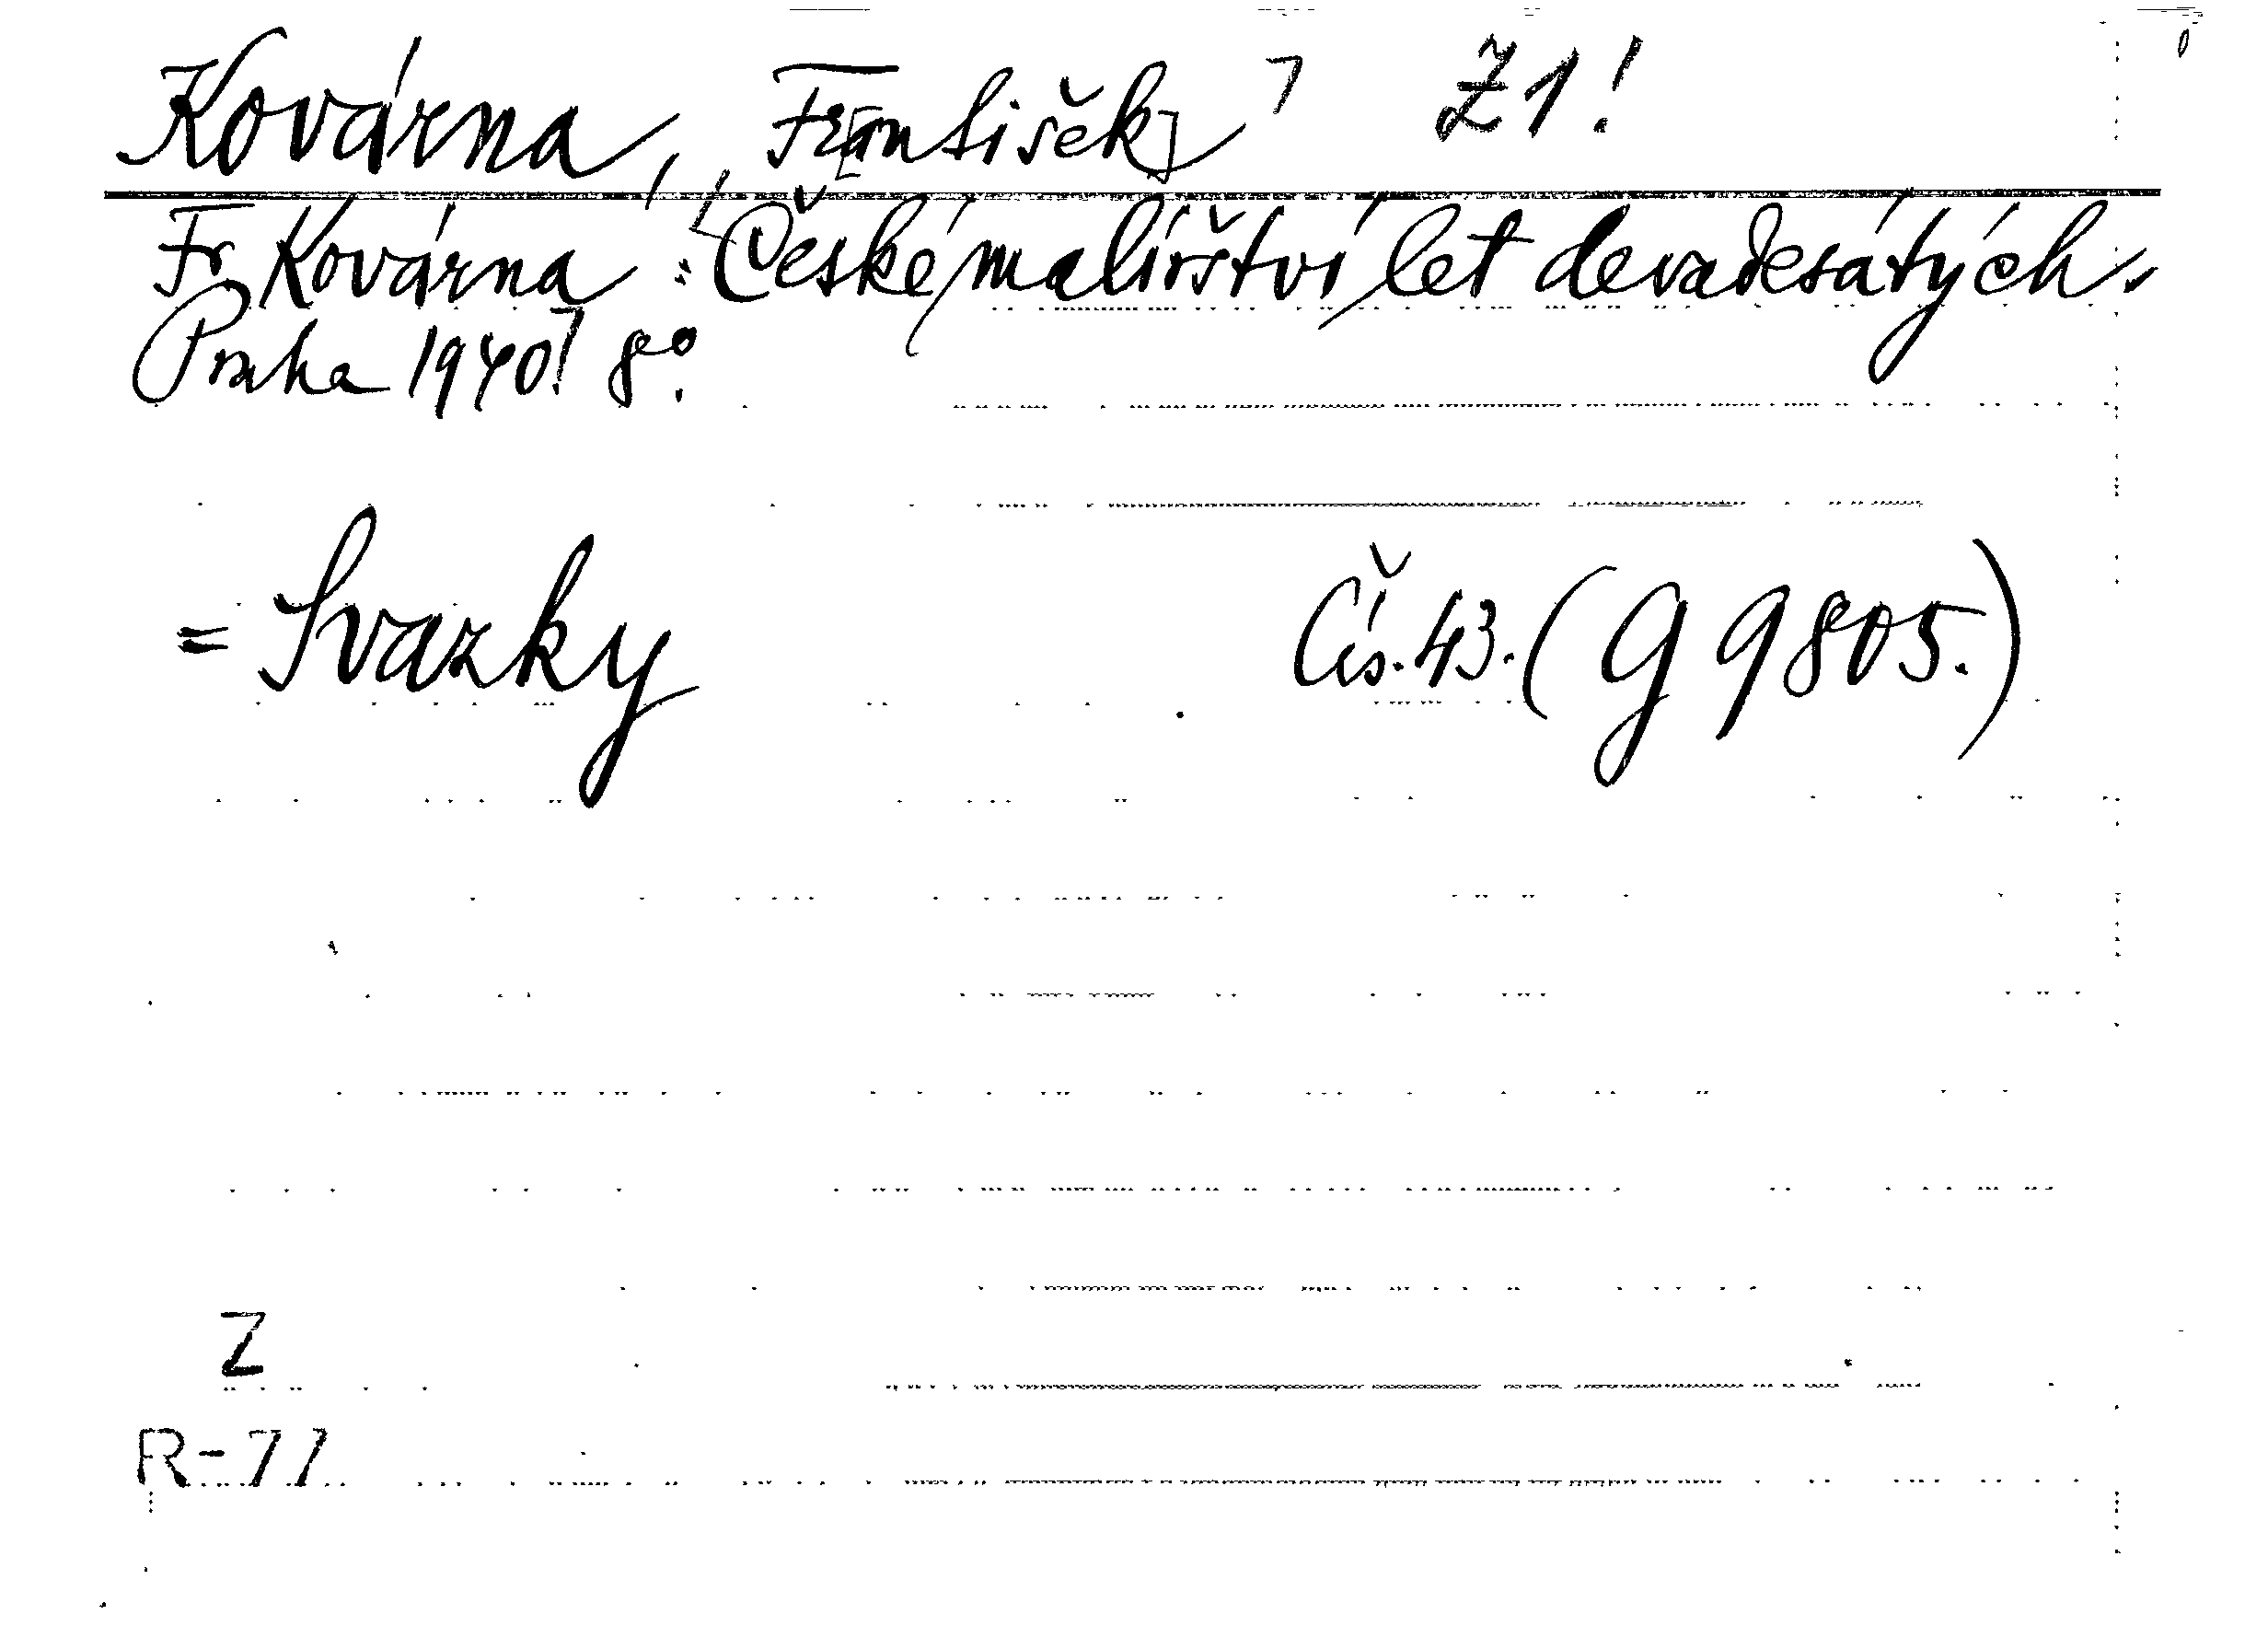 Kovárna, Fr[antišek] 7 Z1!
Fr. Kovárna: České malířství let devadesátých.
Praha 1940. 8°.
= Svazky Čís. 43. (G 9805.)
Z
R-77